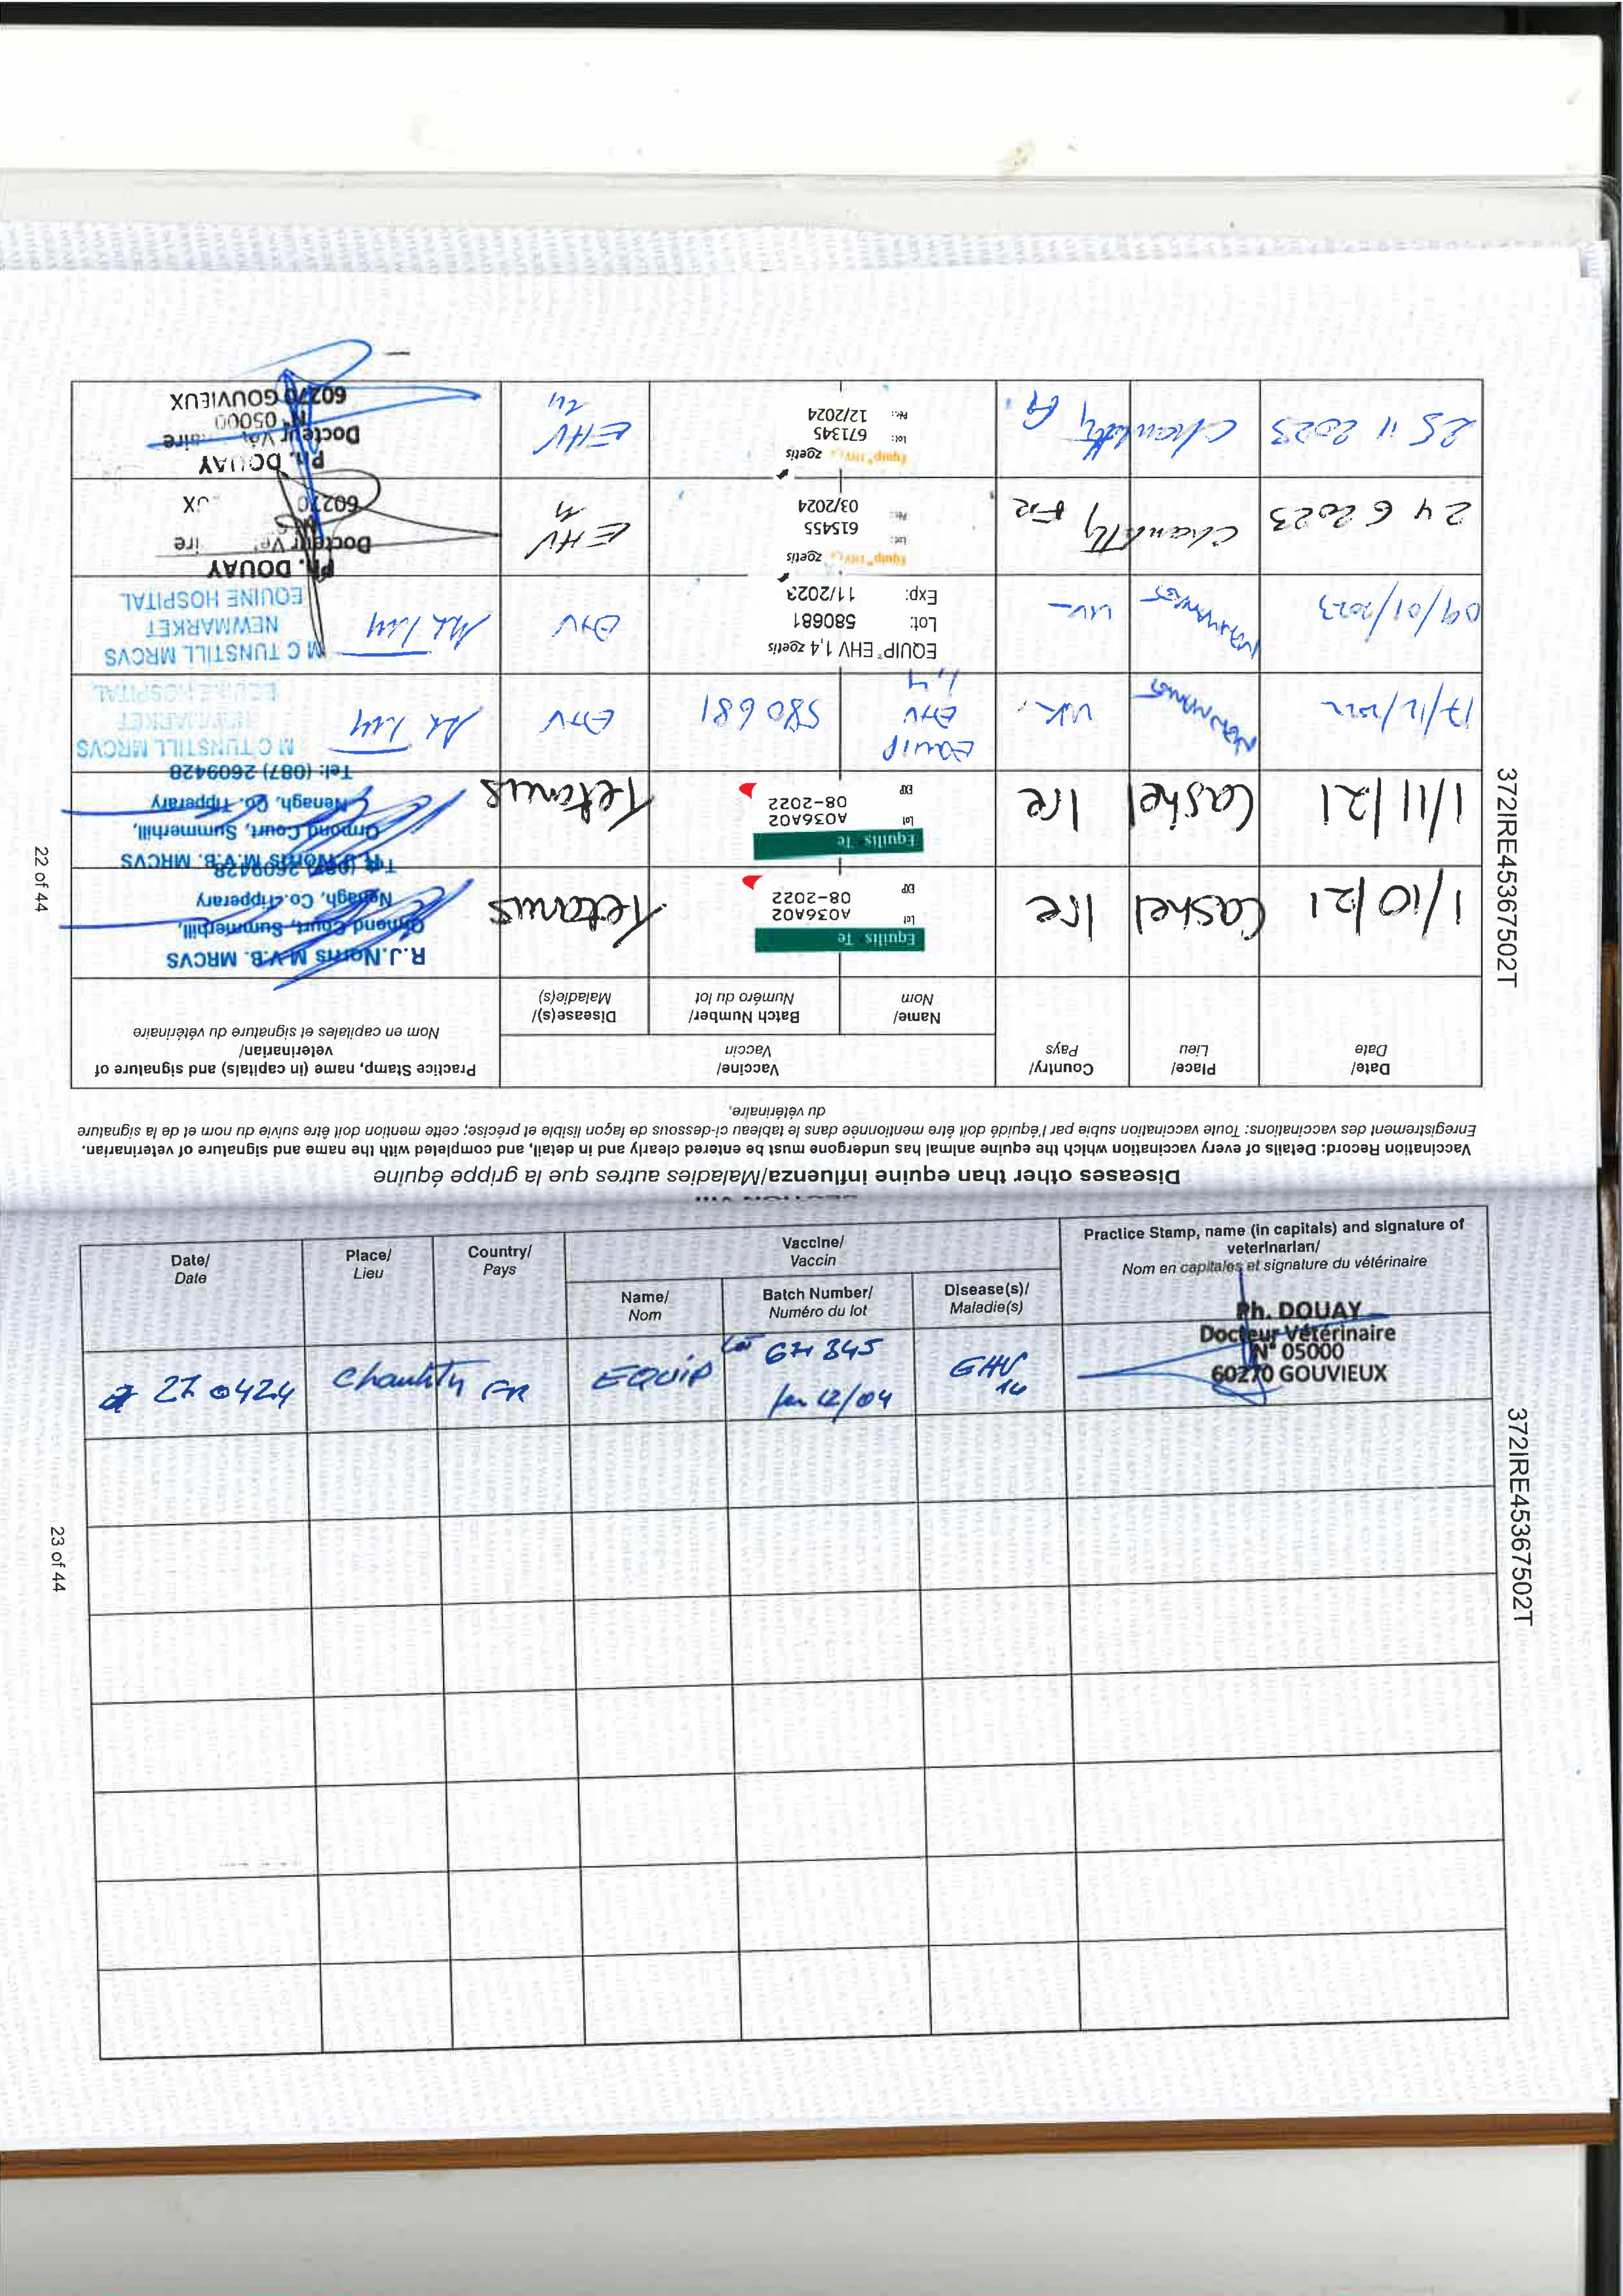 Diseases other than equine influenza/Maladies autres que la grippe équine
Vaccination Record: Details of every vaccination which the equine animal has undergone must be entered clearly and in detail, and completed with the name and signature of veterinarian.
Enregistrement des vaccinations: Toute vaccination subie par l'équidé doit être mentionnée dans le tableau ci-dessous de façon lisible et précise; cette mention doit être suivie du nom et de la signature
du vétérinaire,
Date/
Date
Place/
Lieu
Country/
Pays
Vaccine/
Vaccin
Name/
Nom
Batch Number/
Numéro du lot
Disease(s)/
Maladie(s)
Practice Stamp, name (in capitals) and signature of
veterinarian/
Nom en capitales et signature du vétérinaire
1/10/21 Cashel Ire
Equilis Te
Lot A036A02
EXP 08-2022
Tetanus
R.J.Norris M.V.B. MRCVS
Ormond Court, Summerhill,
Nenagh, Co. Tipperary
Tel: (087) 2609428
1/11/21 Cashel Ire
Equilis Te
Lot A036A02
EXP 08-2022
Tetanus
R.J.Norris M.V.B. MRCVS
Ormond Court, Summerhill,
Nenagh, Co. Tipperary
Tel: (087) 2609428
17/12/2022 Newmarket UK
EQUIP
EHV
1,4
580681
EHV
M C TUNSTILL MRCVS
NEWMARKET
EQUINE HOSPITAL
09/01/2023 Newmarket UK
EQUIP® EHV 1,4 zoetis
Lot: 580681
Exp: 11/2023
EHV
M C TUNSTILL MRCVS
NEWMARKET
EQUINE HOSPITAL
24 6 2023 Chantilly FR
Equip® EHV1,4 zoetis
Lot: 615455
03/2024
EHV
Ph. DOUAY
Docteur Ve ire
60270 UX
25 11 2023 Chantilly
Equip® EHV1,4 zoetis
Lot: 671345
12/2024
EHV
14
Ph. DOUAY
Docteur Vé aire
N° 05000
60270 GOUVIEUX
372IRE45367502T
22 of 44
Date/
Date
Place/
Lieu
Country/
Pays
Vaccine/
Vaccin
Name/
Nom
Batch Number/
Numéro du lot
Disease(s)/
Maladie(s)
Practice Stamp, name (in capitals) and signature of
veterinarian/
Nom en capitales et signature du vétérinaire
27 0424 Chantilly FR EQUIP
Lot 671345
12/04
EHV
14
Ph. DOUAY
Docteur Vétérinaire
N° 05000
60270 GOUVIEUX
372IRE45367502T
23 of 44